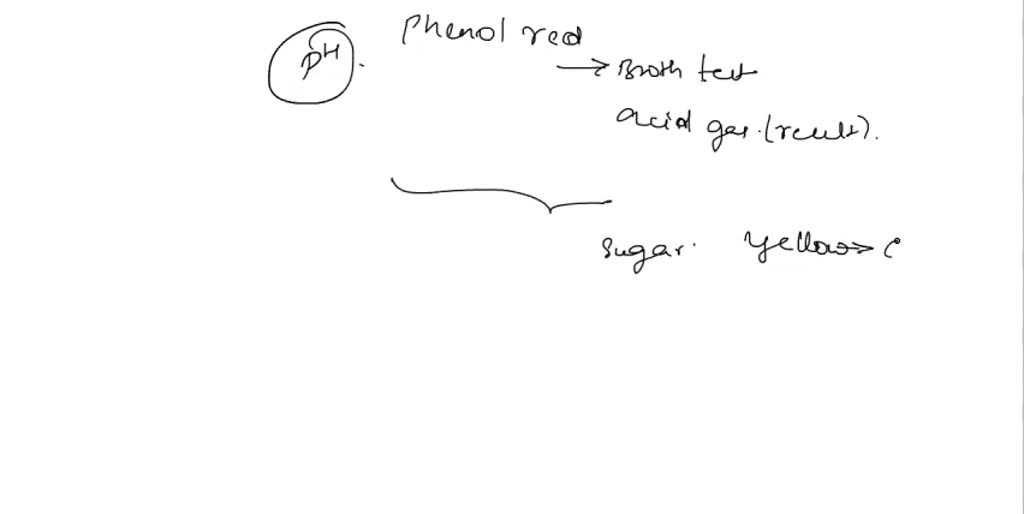 pH.
Phenol red
→ Broth test
acid gas (result).
Sugar. Yellow → (